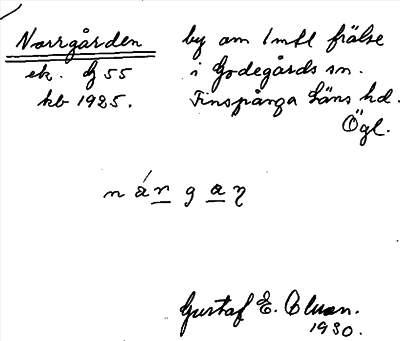 Norrgården by om 1 mtl frälse
ek. G 55 i Godegårds sn.
kb 1925. Finspånga läns hd.
Ögl.
n á r g a n
Gustaf E.
1930.